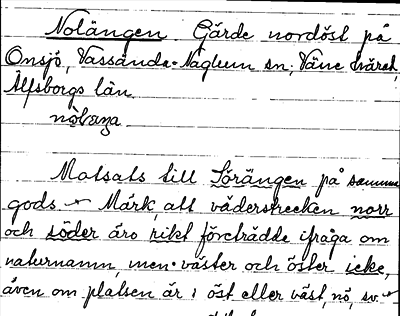 Nolängen. Gärde nordöst på
Onsjö, Vassända-Naglum sn; Väne härad,
Älfsborgs län.
Motsats till Sörängen på samma
gods. Märk, att väderstrecken norr
och söder äro rikt företrädda ifråga om
naturnamn, men väster och öster icke,
även om platsen är i öst eller väst, nö, sv.